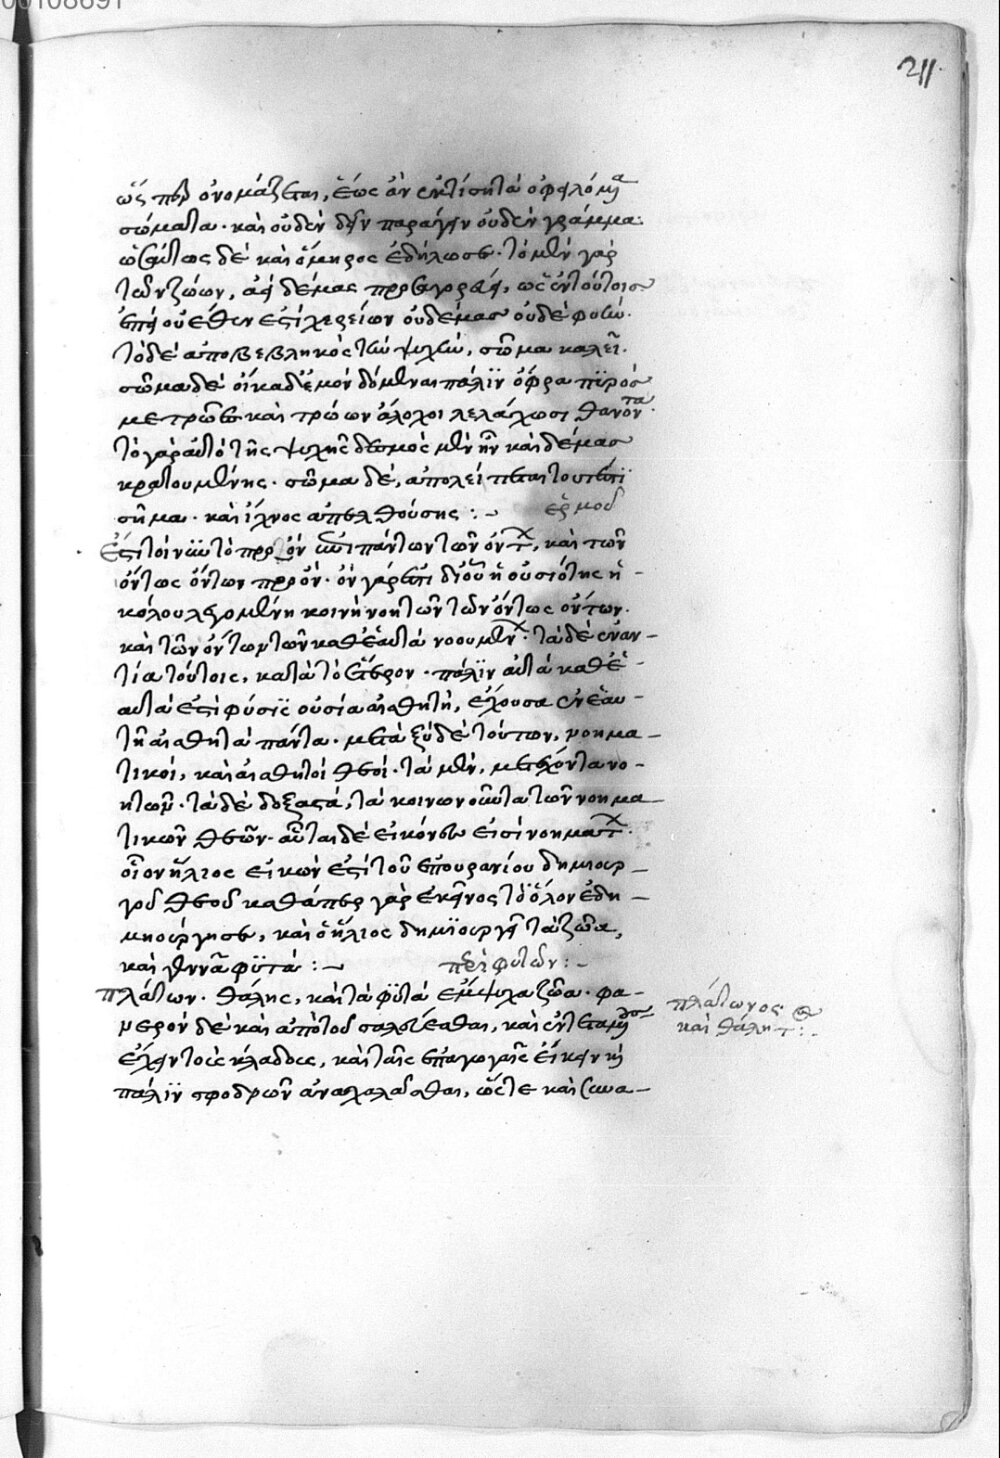 211
ὥς περ ὀνομάζεται, ἕως ἂν ἐκτίσῃ τὰ ὀφειλόμενα
σώματα. καὶ οὐδὲν δεῖν παράγειν οὐδὲν γράμμα.
ὡσαύτως δὲ καὶ ὅμηρος ἐδήλωσε. τὸ μὲν γὰρ
τῶν ζώων, ἀεὶ δέμας προσαγορεύει, ὡς ἐν τούτοις
ἐπεὶ οὐ ἕθεν ἐστὶ χερείων οὐ δέμας οὐδὲ φυὴν.
τὸ δὲ ἀποβεβληκὸς τὴν ψυχὴν, σῶμα καλεῖ.
σῶμα δὲ οἴκαδ' ἐμὸν δόμεναι πάλϊν ὄφρα πϋρός
με τρῶες καὶ τρώων ἄλοχοι λελάχωσι θανόντα.
τὸ γὰρ αὐτὸ τῆς ψυχῆς δεσμὸς μὲν ἦν καὶ δέμας
κρατουμένης. σῶμα δὲ, ἀπολείπεται τουτέστι
σῆμα. καὶ ἴχνος ἀπελθούσης :~ ἑρμοῦ
Ἔστι τοίνϋν τὸ προὸν ἐπὶ πάντων τῶν ὄντων, καὶ τῶν
ὄντως ὄντων προόν. ὂν γάρ ἐστι δι' οὗ ἡ οὐσιότης ἡ
κόλου λεγομένη κοινὴ νοητῶν τῶν ὄντως ὄντων.
καὶ τῶν ὄντων τῶν καθ' ἑαυτὰ νοουμένων. τὰ δὲ ἐναν-
τία τούτοις, κατὰ τὸ ἕτερον. πάλϊν αὐτὰ καθ' ἑ-
αυτά ἐστι φύσϊς οὐσία αἰσθητὴ, ἔχουσα ἐν ἑαυ-
τῇ αἰσθητὰ πάντα. μεταξὺ δὲ τούτων, νοημα-
τικοὶ, καὶ αἰσθητοὶ θεοὶ. τὰ μὲν, μετέχοντα νο-
ητῶν. τὰ δὲ δοξαστά, τὰ κοινωνοῦντα τῶν νοημα-
τικῶν θεῶν. αὗται δὲ εἰκόνες εἰσὶ νοημάτων.
οἷον ἥλιος εἰκών ἐστι τοῦ ἐπουρανίου δημιουρ-
γοῦ θεοῦ καθάπερ γὰρ ἐκεῖνος τὸ ὅλον ἐδη-
μιούργησε, καὶ ὁ ἥλιος δημϊουργεῖ τὰ ζῷα,
καὶ γεννᾷ φϋτά :~ περὶ φυτῶν :~
πλάτων. θάλης, καὶ τὰ φϋτά ἔμψυχα ζῷα. φα-
νερὸν δὲ καὶ ἀπὸ τοῦ σαλεύεσθαι, καὶ ἐντεταμένους
ἔχειν τοὺς κλάδους, καὶ ταῖς ἐπαγωγαῖς εἴκειν καὶ
πάλϊν σφοδρῶν ἀναχαλᾶσθαι, ὥστε καὶ συνα-
πλάτωνος
καὶ θάλητ :~